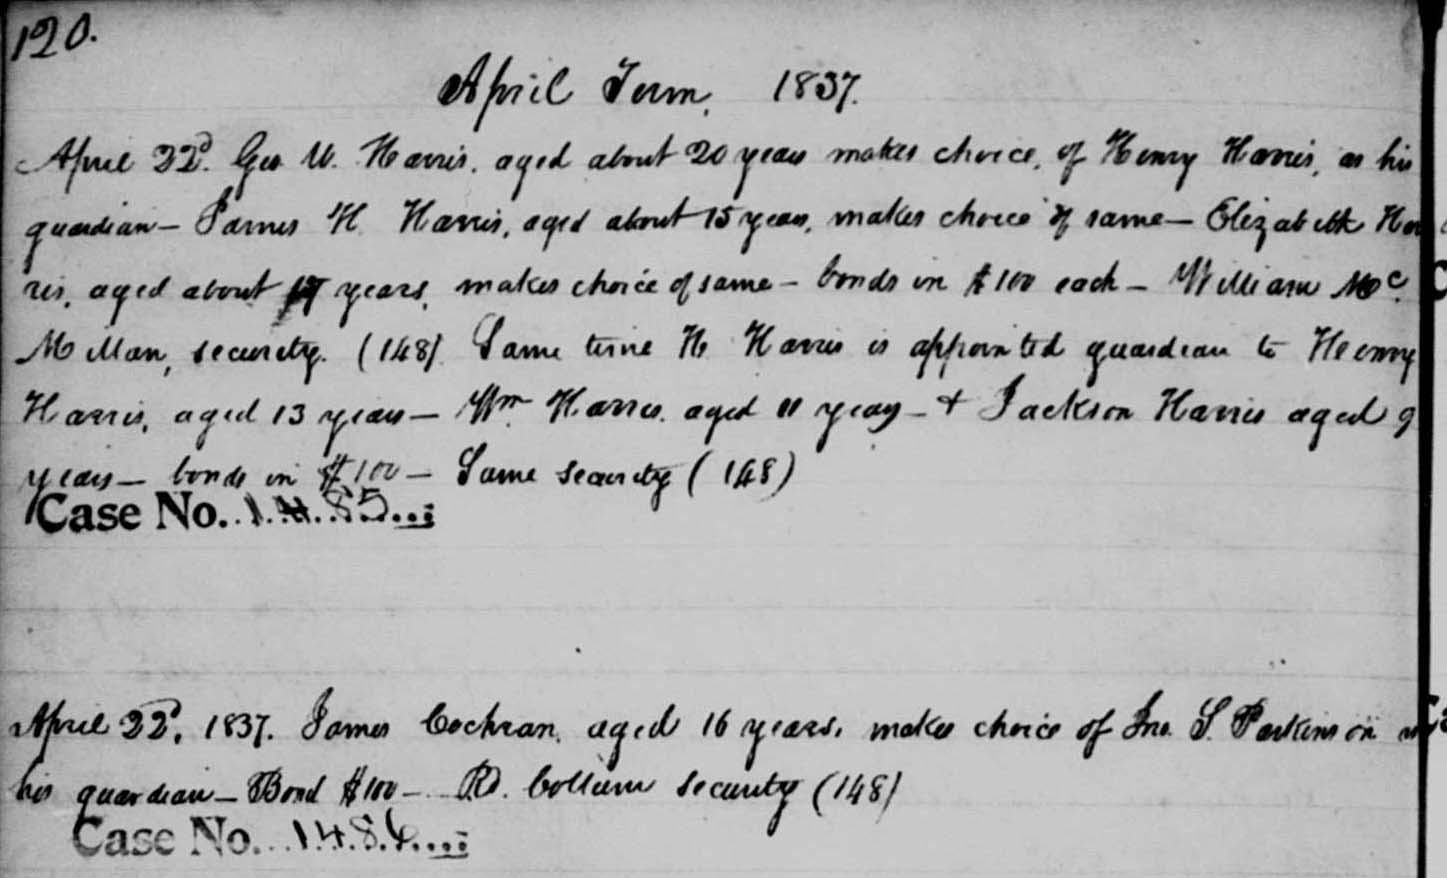 120.
April Term, 1837.
April 22d. Geo W. Harris, aged about 20 years makes choice, of Henry Harris, as his
guardian — James H. Harris, aged about 15 years, makes choice of same — Elizabeth Har
ris, aged about 17 years, makes choice of same — bonds in $100 each — William Mc.
Millan, security. (148) Same time H Harris is appointed guardian to Henry
Harris, aged 13 years — Wm Harris, aged 11 years — + Jackson Harris aged 9
years — bonds in $100 — Same security (148)
Case No. 1485
April 22d, 1837. James Cochran, aged 16 years, makes choice of Jno. S. Parkinson as
his guardian — Bond $100 — Rd. Collum security (148)
Case No. 1486